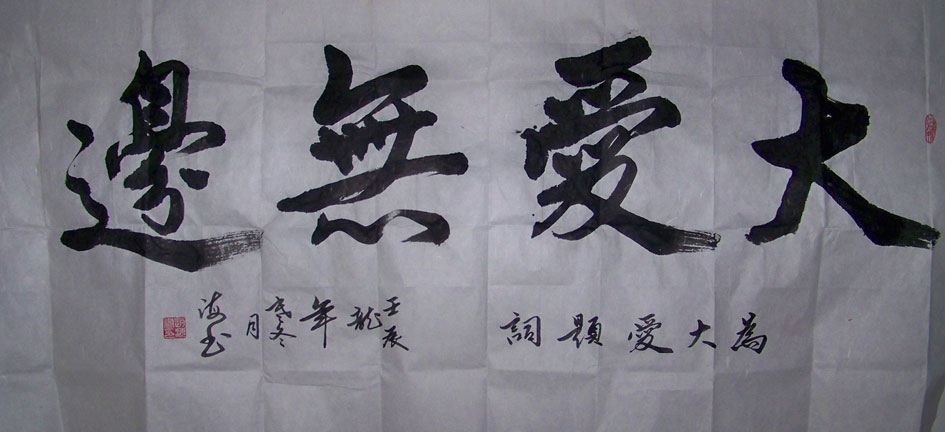 大愛無邊
為大愛題詞
壬辰龍年
冬月
海書